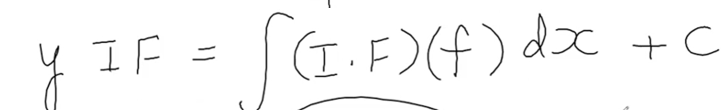 y IF = ∫(I.F)(f) dx + C